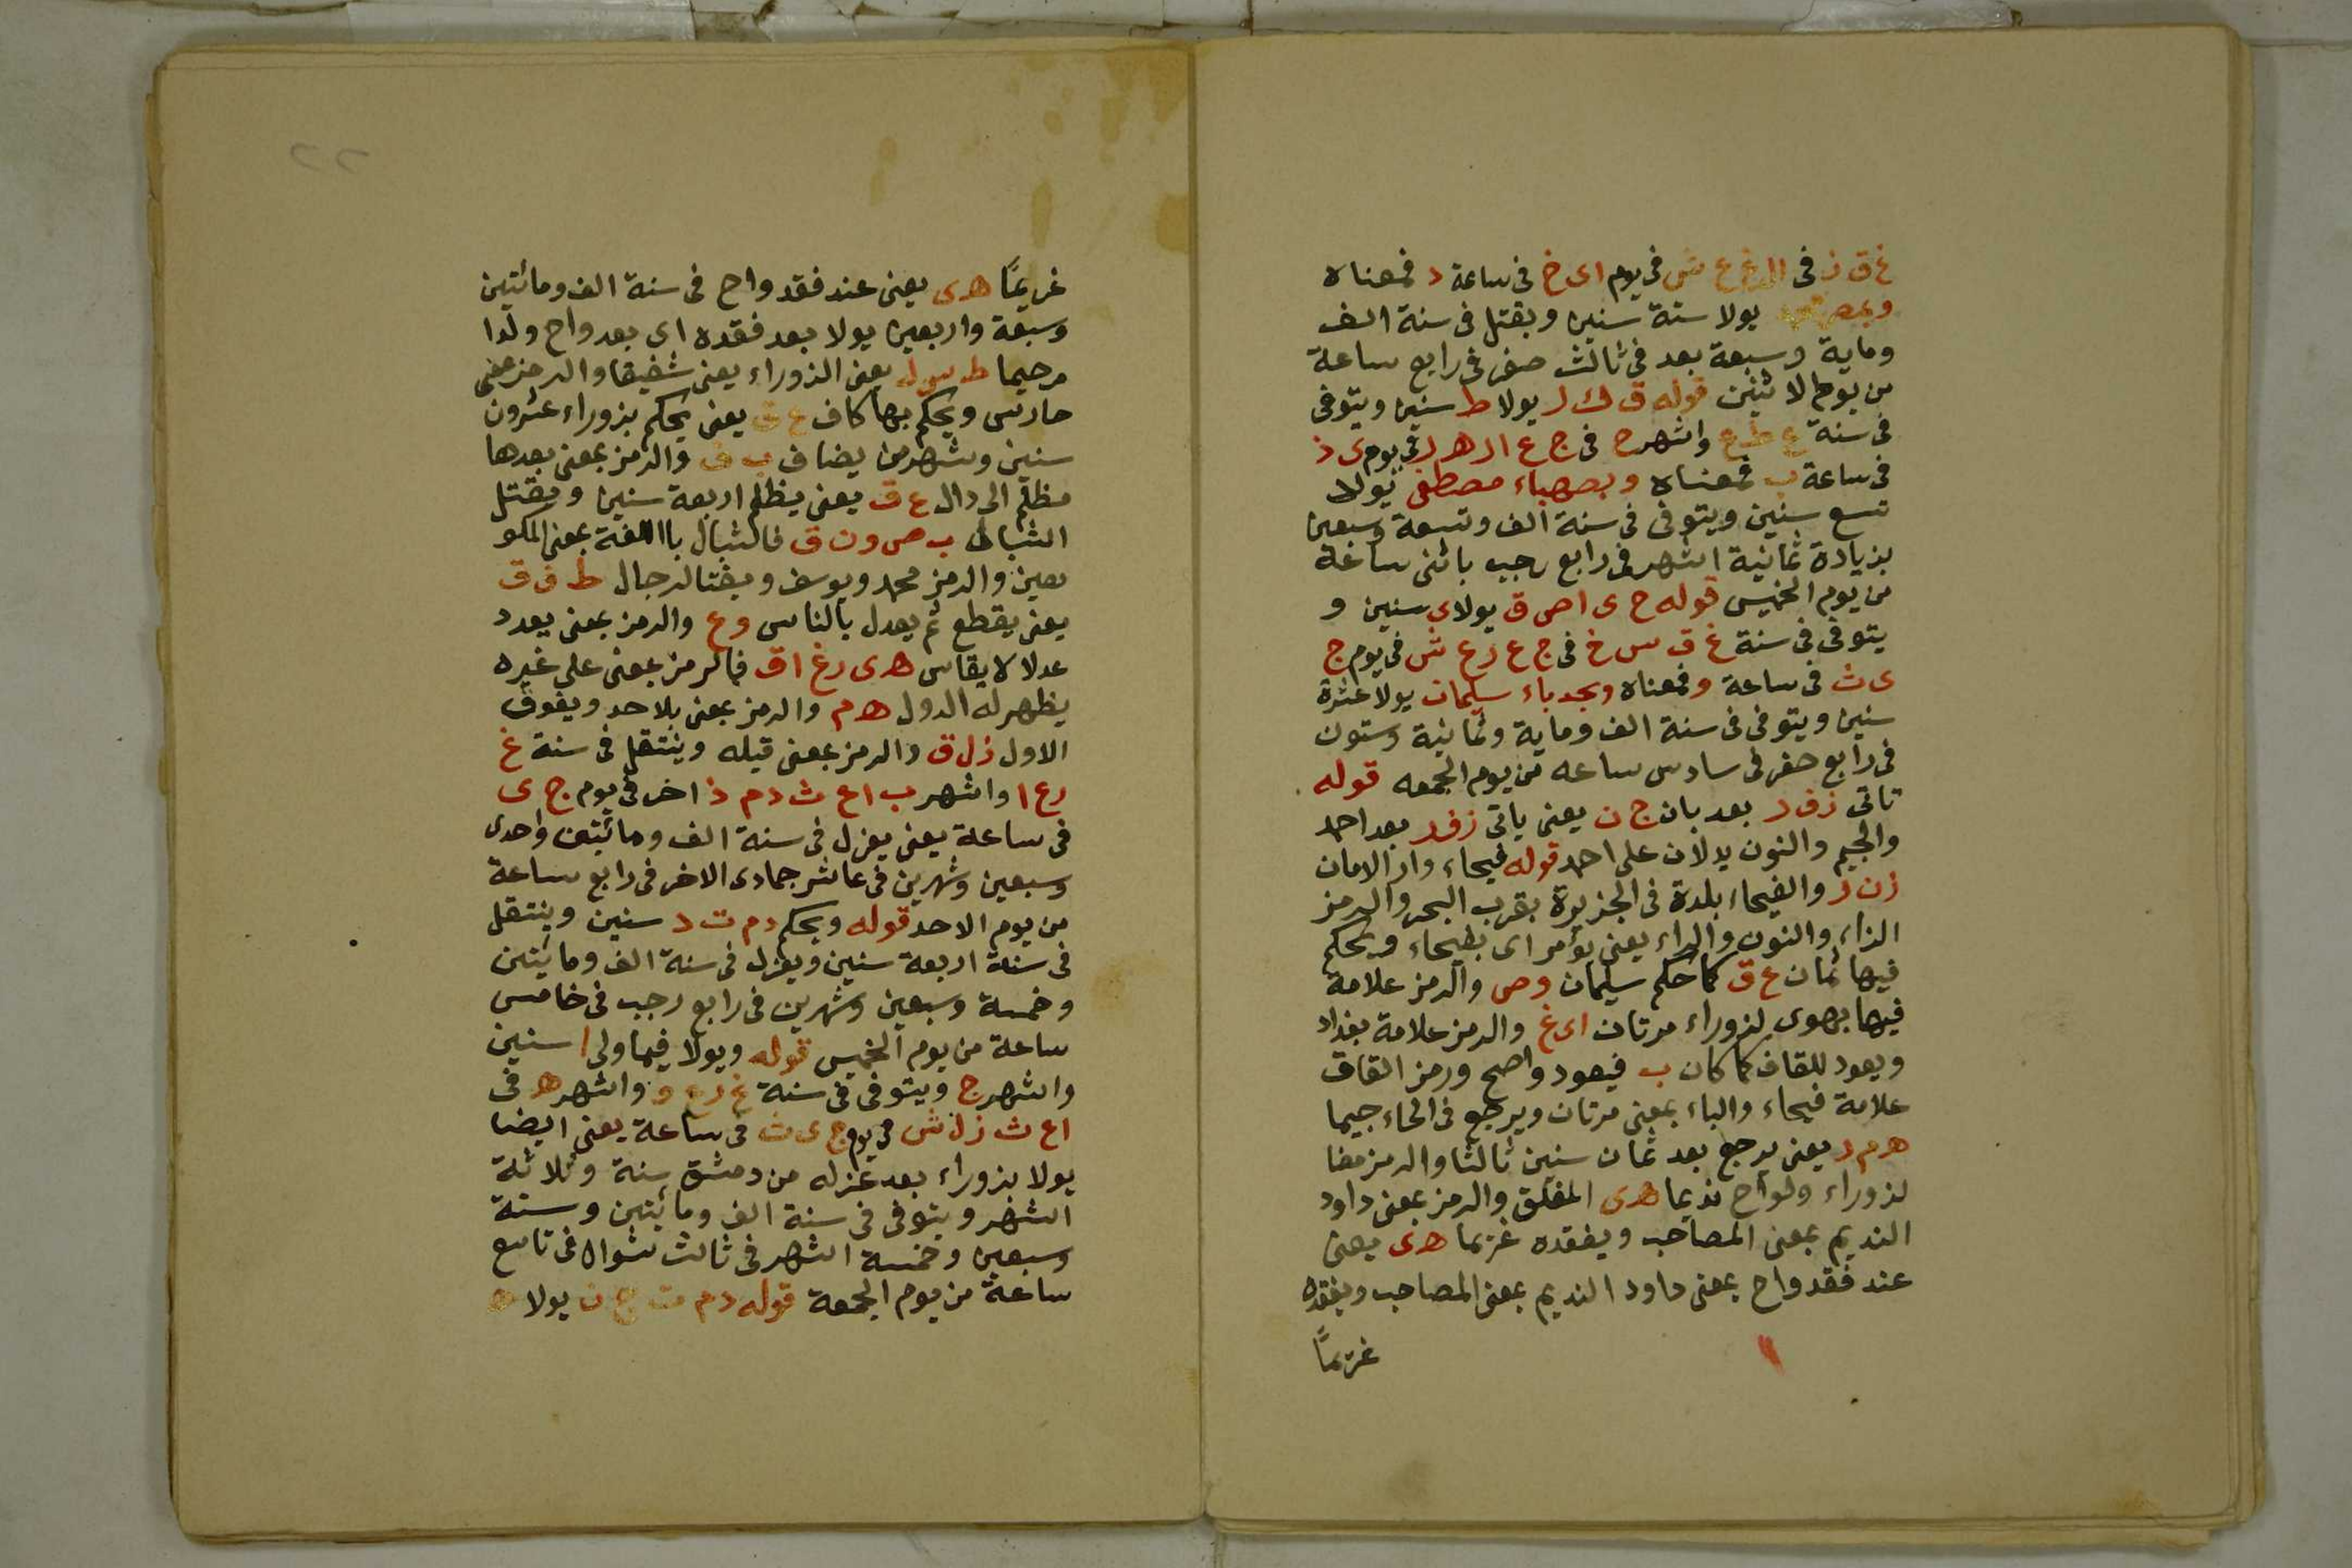 غ ق ز فى ع ش فى يوم اى خ فى ساعة د فمعناه
يولا ستة سنين ويقتل فى سنة الف
وماية وسبعة بعد فى ثالث صفر فى رابع ساعة
من يوم الاثنين قوله ق ك ر يولا ط سنين ويتوفى
فى سنة ع ط ع واشهر ح فى ج ع ار ه ر فى يوم ى ذ
فى ساعة ب فمعناه وبصهباء مصطفى يولا
تسع سنين ويتوفى فى سنة الف وتسعة وسبعين
بزيادة ثمانية اشهر فى رابع رجب باثنى ساعة
من يوم الخميس قوله ح ى ا ص ق يولا ى سنين و
يتوفى فى سنة غ ق س خ فى ج ع ر ع ش فى يوم ج
ى ث فى ساعة و فمعناه وبحدباء سليمان يولا عشرة
سنين ويتوفى فى سنة الف وماية وثمانية وستون
فى رابع صفر فى سادس ساعه من يوم الجمعه قوله
تاتى ز ف ر بعد بان ج ن يعنى ياتى زفر بعد احمد
والجيم والنون يدلان على احمد قوله فيحاء وار الامان
ز ن ر والفيحاء بلدة فى الجزيرة بقرب البحر والرمز
الزاء والنون والراء يعنى يؤمر اى بفيحاء ويحكم
فيها ثمان ع ق كما حكم سليمان وص والرمز علامة
فيها يهوى لزوراء مرتان اى غ والرمز علامة بغداد
ويعود للقاف كما كان ب فيعود واضح ورمز القاف
علامة فيحاء والباء بمعنى مرتان ويرجع فى الحاء جيما
ه م ر يعنى يرجع بعد ثمان سنين ثالثا والرمز مضا
لزوراء ولواح نديما هدى المفلق والرمز بمعنى داود
النديم بمعنى المصاحب ويفقده غريما هدى يعنى
عند فقد واح بمعنى داود النديم بمعنى المصاحب ويفقده
غريمًا
٢٢
غريمًا هدى يعنى عند فقد واح فى سنة الف ومائتين
وسبعة واربعين يولا بعد فقده اى بعد واح ولدا
مرحيما ط س ر ل يعنى الزوراء يعنى شفيقا والرمز معنى
حارس ويحكم بها كاف ع ق يعنى يحكم بزوراء عشرون
سنين وشهرين يضاف ب ف والرمز بمعنى بعدها
مظلم الى دال ع ق يعنى يظلم اربعة سنين ويقتل
الشبال ب ص ون ق فالشبال باللغة بمعنى المكو
مصين والرمز محمد ويوسف ويفتا لرجال ط ف ق
يعنى يقطع ثم يعدل بالناس وع والرمز بمعنى يعدد
عدلا لا يقاس هدى رغ اق فالرمز بمعنى على غيره
يظهر له الدول ه م والرمز بمعنى بلاحد ويفوق
الاول ز ل ق والرمز بمعنى قبله وينتقل فى سنة غ
ر ع ا واشهر ب ا ع ث د م ذ اخر فى يوم ج ى
فى ساعة يعنى يعزل فى سنة الف ومائتين واحدى
وسبعين وشهرين فى عاشر جمادى الاخر فى رابع ساعة
من يوم الاحد قوله ويحكم د م ت د سنين وينتقل
فى سنة اربعة سنين ويعزل فى سنة الف ومائتين
وخمسة وسبعين وشهرين فى رابع رجب فى خامس
ساعة من يوم الخميس قوله ويولا فيما ولى ا سنين
واشهر ج ويتوفى فى سنة غ ر ع و واشهر ه فى
ا ع ث ز ل ش فى يوم ج ى ث فى ساعة يعنى ايضا
يولا بزوراء بعد عزله من دمشق سنة وثلاثة
اشهر ويتوفى فى سنة الف ومائتين وستة
وسبعين وخمسة اشهر فى ثالث شوال فى تاسع
ساعة من يوم الجمعة قوله د م ت ج ن يولا ه